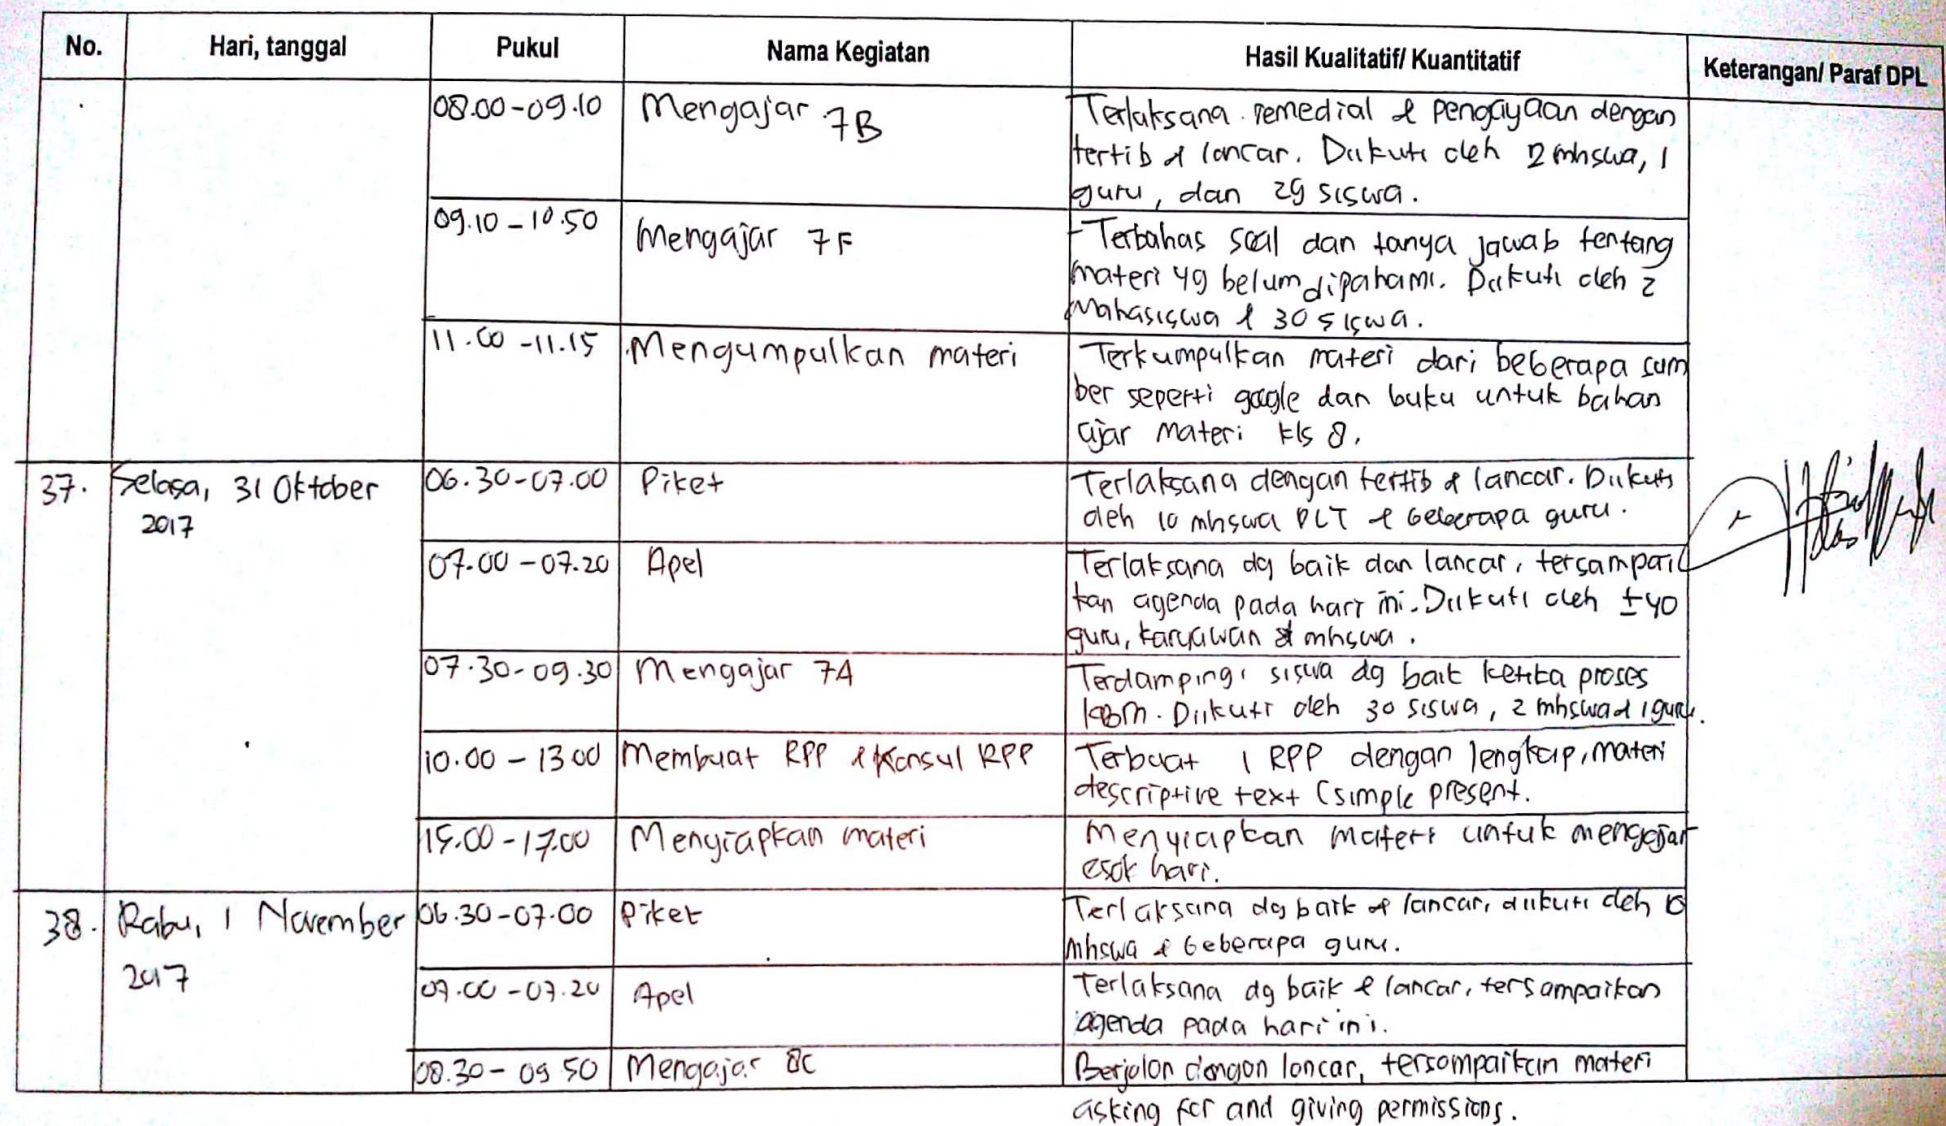 No. Hari, tanggal Pukul Nama Kegiatan Hasil Kualitatif/ Kuantitatif Keterangan/ Paraf DPL
08.00-09.10 Mengajar 7B Terlaksana remedial & pengayaan dengan
tertib & lancar. Diikuti oleh 2 mhswa, 1
guru, dan 29 siswa.
09.10-10.50 Mengajar 7F -Terbahas soal dan tanya jawab tentang
materi yg belum dipahami. Diikuti oleh 2
Mahasiswa & 30 siswa.
11.00-11.15 Mengumpulkan materi Terkumpulkan materi dari beberapa sum
ber seperti google dan buku untuk bahan
ajar materi kls 8.
37. Selasa, 31 Oktober 06.30-07.00 Piket Terlaksana dengan tertib & lancar. Diikuti
2017 oleh 10 mhswa PLT & beberapa guru.
07.00-07.20 Apel Terlaksana dg baik dan lancar, tersampai
kan agenda pada hari ini. Diikuti oleh ±40
guru, karyawan & mhswa.
07.30-09.30 Mengajar 7A Terdampingi siswa dg baik ketika proses
KBM. Diikuti oleh 30 siswa, 2 mhswa & 1 guru.
10.00-13.00 Membuat RPP & Konsul RPP Terbuat 1 RPP dengan lengkap, materi
descriptive text (simple present.
15.00-17.00 Menyiapkan materi Menyiapkan materi untuk mengajar
esok hari.
38. Rabu, 1 November 06.30-07.00 Piket Terlaksana dg baik & lancar, diikuti oleh 10
2017 mhswa & beberapa guru.
07.00-07.20 Apel Terlaksana dg baik & lancar, tersampaikan
agenda pada hari ini.
08.30-09.50 Mengajar 8C Berjalan dengan lancar, tersampaikan materi
asking for and giving permissions.